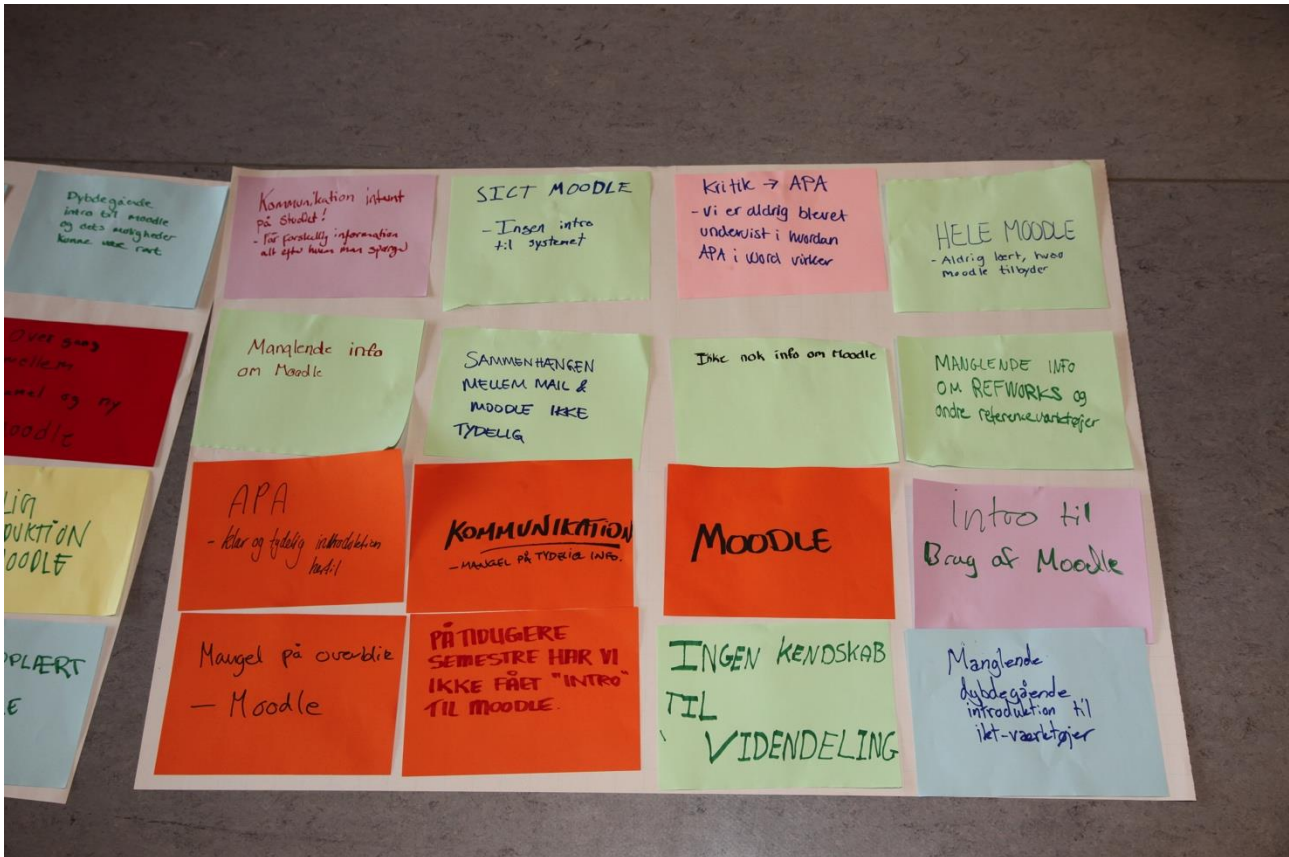 Dybdegående
intro til moodle
og dets muligheder
kunne være rart
Over gang
mellem
og ny
Moodle
DUKTION
MOODLE
OPLÆRT
Kommunikation internt
på studiet!
- Får forskellig information
alt efter hvem man spørger
SICT MOODLE
- Ingen intro
til systemet
Kritik → APA
- Vi er aldrig blevet
undervist i hvordan
APA i Word virker
HELE MOODLE
- Aldrig lært, hvad
moodle tilbyder
Manglende info
om Moodle
SAMMENHÆNGEN
MELLEM MAIL &
MOODLE IKKE
TYDELIG
Ikke nok info om Moodle
MANGLENDE INFO
OM REFWORKS og
andre referenceværktøjer
APA
- klar og tydelig introduktion
hertil
KOMMUNIKATION
- MANGEL PÅ TYDELIG INFO.
MOODLE
intro til
Brug af Moodle
Mangel på overblik
- Moodle
PÅ TIDLIGERE
SEMESTRE HAR VI
IKKE FÅET "INTRO"
TIL MOODLE.
INGEN KENDSKAB
TIL
VIDENDELING
Manglende
dybdegående
introduktion til
ikt-værktøjer